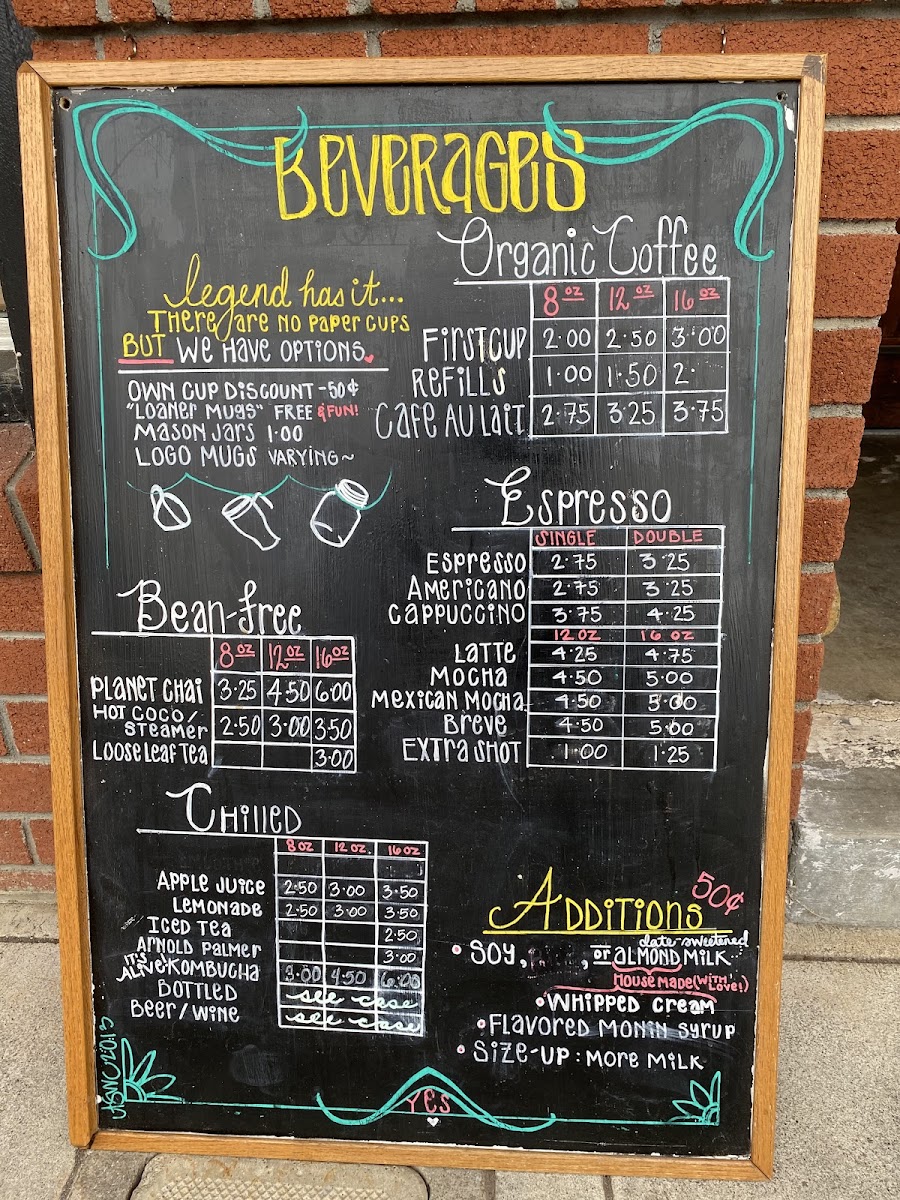 BEVERAGES
legend has it...
THERE ARE NO PAPER CUPS
BUT WE HAVE OPTIONS
OWN CUP DISCOUNT -50¢
"LOANER MUGS" FREE & FUN!
MASON JARS 1.00
LOGO MUGS VARYING~
Organic Coffee
8 oz 12 oz 16 oz
FIRST CUP 2.00 2.50 3.00
REFILLS 1.00 1.50 2.
CAFE AU LAIT 2.75 3.25 3.75
Espresso
SINGLE DOUBLE
ESPRESSO 2.75 3.25
AMERICANO 2.75 3.25
CAPPUCCINO 3.75 4.25
12 OZ 16 OZ
LATTE 4.25 4.75
MOCHA 4.50 5.00
MEXICAN MOCHA 4.50 5.00
BREVE 4.50 5.00
EXTRA SHOT 1.00 1.25
Bean-free
8 oz 12 oz 16 oz
PLANET CHAI 3.25 4.50 6.00
HOT COCO/
STEAMER 2.50 3.00 3.50
LOOSE LEAF TEA 3.00
CHILLED
8 OZ 12 OZ. 16 OZ
APPLE JUICE 2.50 3.00 3.50
LEMONADE 2.50 3.00 3.50
ICED TEA 2.50
ARNOLD PALMER 3.00
IT'S ALIVE! KOMBUCHA 3.00 4.50 6.00
BOTTLED see case
BEER/WINE see case
ADDITIONS 50¢
date-sweetened
• SOY, , or ALMOND MILK
HOUSE MADE (WITH LOVE!)
• WHIPPED CREAM
• FLAVORED MONIN SYRUP
• SIZE-UP: MORE MILK
YES